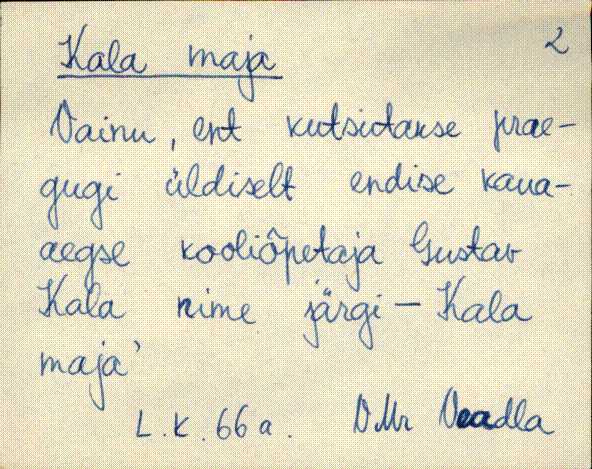 Kala maja 2
Vainu, ent kutsutakse prae-
gugi üldiselt endise kaua-
aegse kooliõpetaja Gustav
Kala nime järgi – Kala
maja'
L.K. 66 a. VMr Veadla